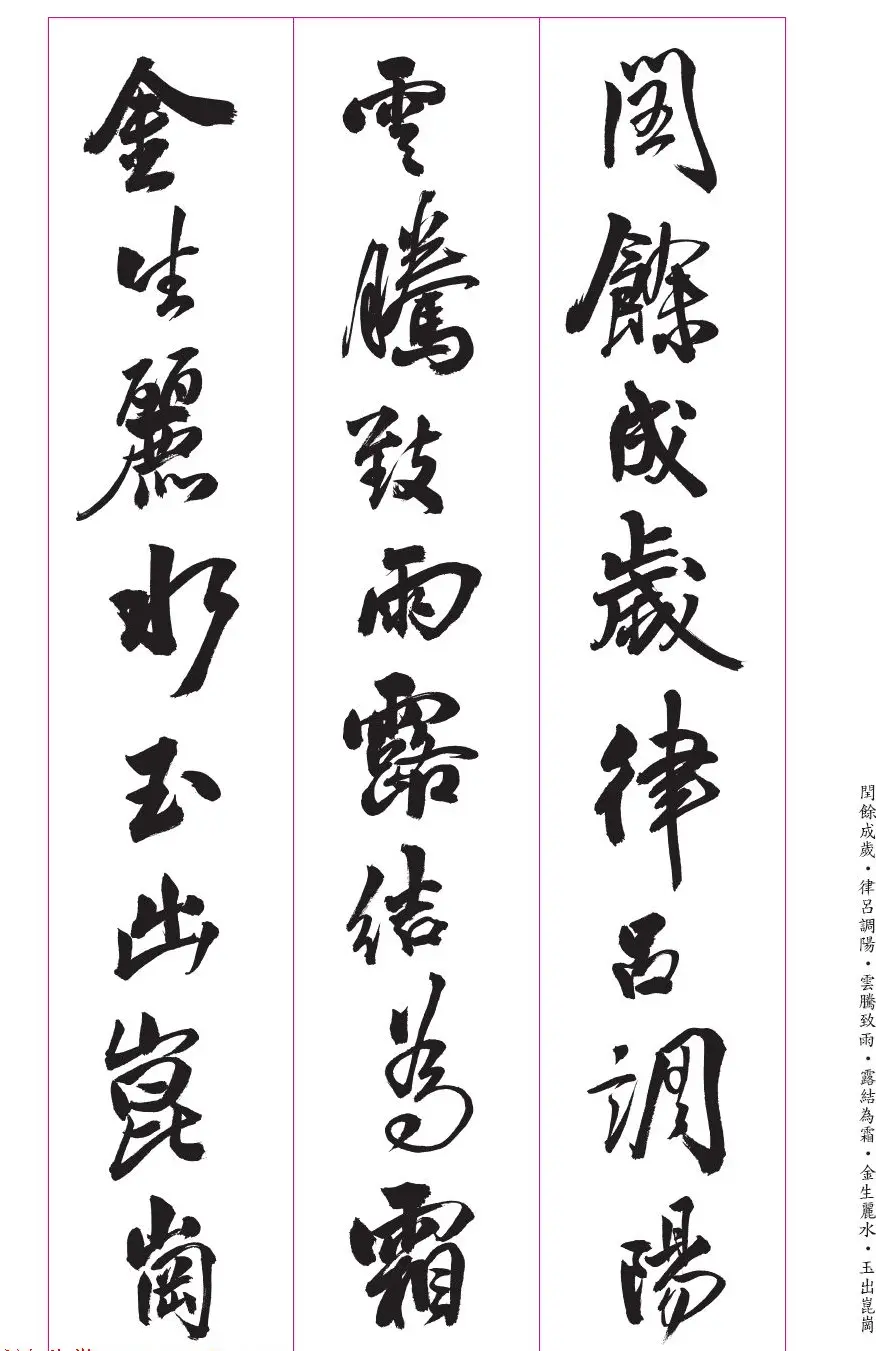 閏餘成歲律呂調陽
雲騰致雨露結為霜
金生麗水玉出崑崗
閏餘成歲・律呂調陽・雲騰致雨・露結為霜・金生麗水・玉出崑崗